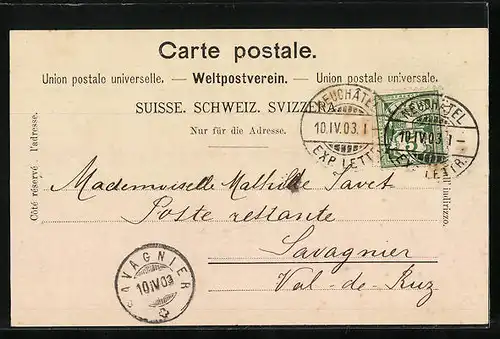 Carte postale.
Union postale universelle. — Weltpostverein. — Union postale universale.
SUISSE. SCHWEIZ. SVIZZERA.
Nur für die Adresse.
NEUCHÂTEL
10.IV.03. 1-
EXP. LETTR.
NEUCHÂTEL
10.IV.03. 1-
LETTR.
5
Côté réservé à l'adresse.
all' indirizzo.
Mademoiselle Mathilde Javet
Poste restante
Savagnier
Val-de-Ruz
SAVAGNIER
10 IV 03